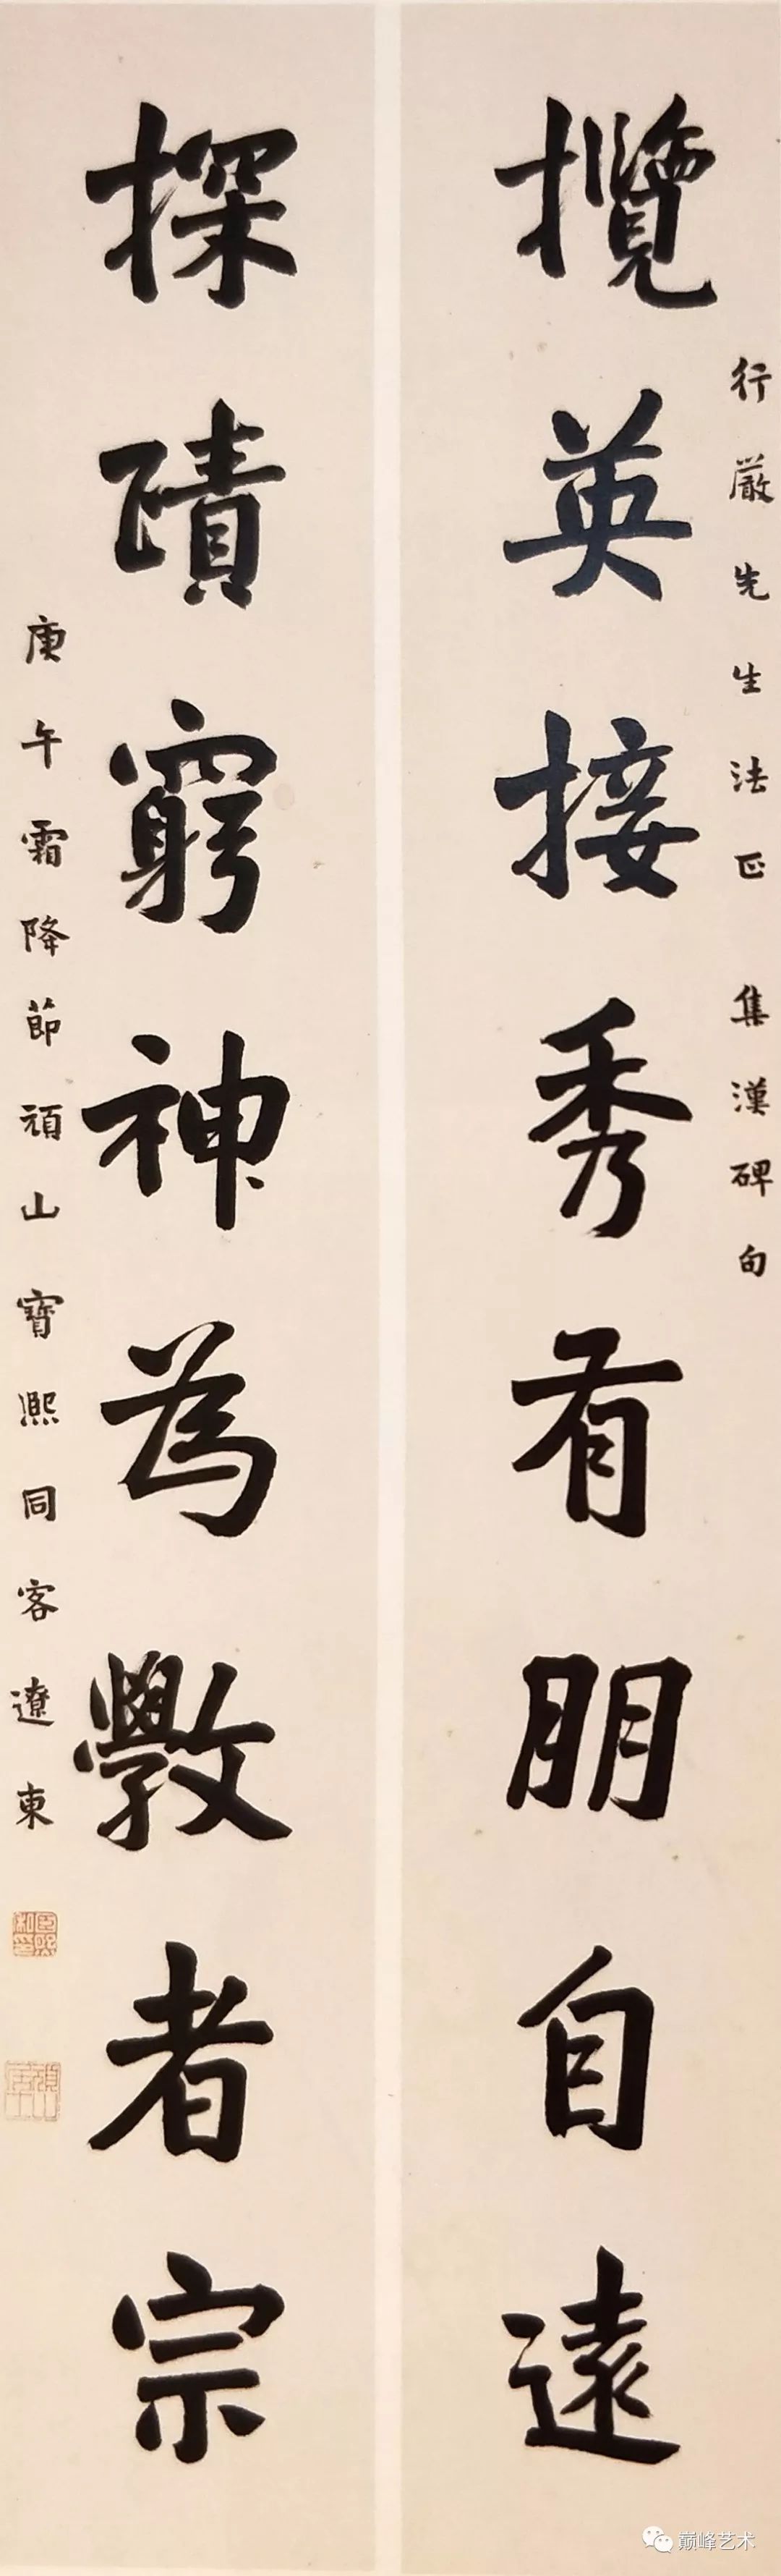 行嚴先生法正 集漢碑句
攬英接秀有朋自遠
探賾窮神為斆者宗
庚午霜降節頑山寶熙同客遼東
巅峰艺术